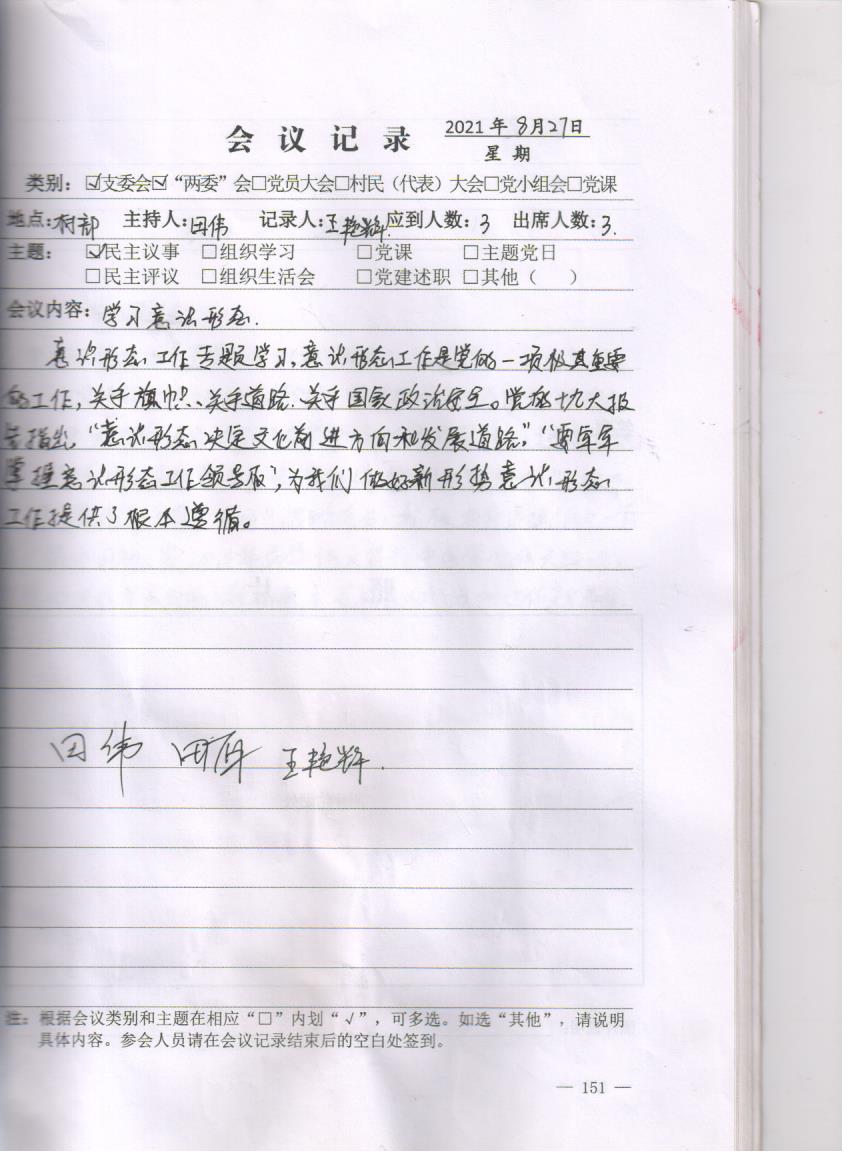 会议记录
2021年8月27日
星期
类别：☑支委会☑“两委”会□党员大会□村民（代表）大会□党小组会□党课
地点：村部 主持人：田伟 记录人：王艳辉 应到人数：3 出席人数：3.
主题： ☑民主议事 □组织学习 □党课 □主题党日
□民主评议 □组织生活会 □党建述职 □其他（ ）
会议内容：学习意识形态.
意识形态工作专题学习，意识形态工作是党的一项极其重要
的工作，关乎旗帜、关乎道路、关乎国家政治安全。党的十九大报
告指出“意识形态决定文化前进方向和发展道路”，“要牢牢
掌握意识形态工作领导权”，为我们做好新形势意识形态
工作提供了根本遵循。
田伟 田 王艳辉.
注：根据会议类别和主题在相应“□”内划“√”，可多选。如选“其他”，请说明
具体内容。参会人员请在会议记录结束后的空白处签到。
— 151 —